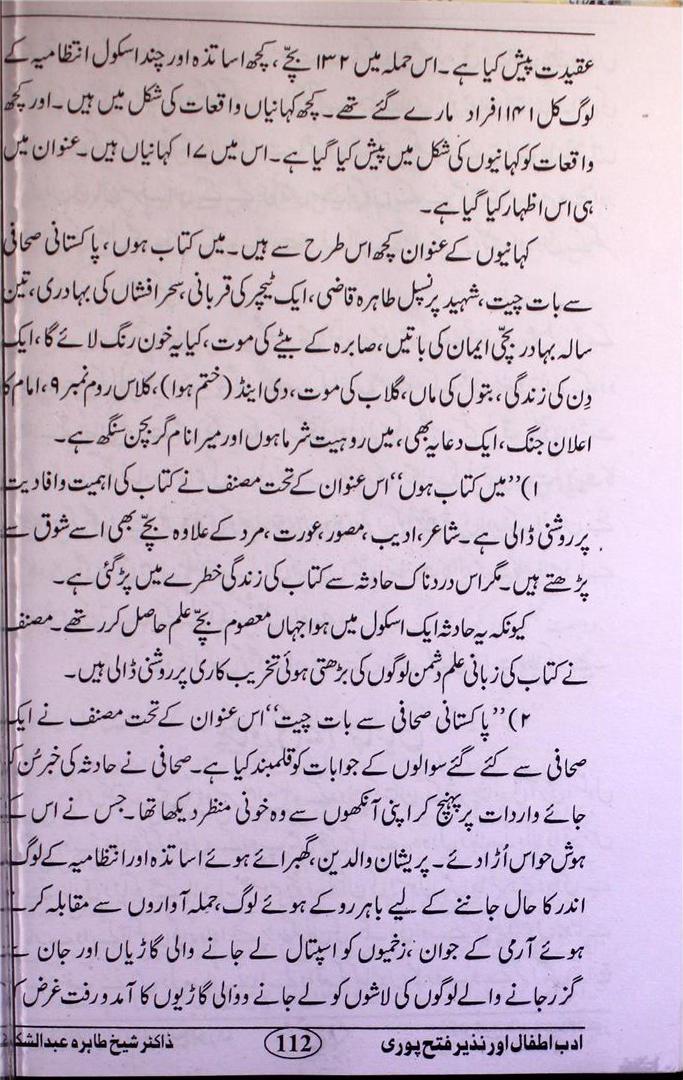 عقیدت پیش کیا ہے۔ اس حملہ میں ۱۳۲ بچّے، کچھ اساتذہ اور چند اسکول انتظامیہ کے
لوگ کل ۱۴۱ افراد مارے گئے تھے۔ کچھ کہانیاں واقعات کی شکل میں ہیں۔ اور کچھ
واقعات کو کہانیوں کی شکل میں پیش کیا گیا ہے۔ اس میں ۱۷ کہانیاں ہیں۔ عنوان میں
ہی اس اظہار کیا گیا ہے۔
کہانیوں کے عنوان کچھ اس طرح سے ہیں۔ میں کتاب ہوں، پاکستانی صحافی
سے بات چیت، شہید پرنسپل طاہرہ قاضی، ایک ٹیچر کی قربانی، سحر افشاں کی بہادری، تین
سالہ بہادر بچّی ایمان کی باتیں، صابرہ کے بیٹے کی موت، کیا یہ خون رنگ لائے گا، ایک
دِن کی زندگی، بتول کی ماں، گلاب کی موت، دی اینڈ (ختم ہوا)، کلاس روم نمبر ۹، امام کا
اعلان جنگ، ایک دعا یہ بھی، میں روہیت شرما ہوں اور میرا نام گربچن سنگھ ہے۔
۱) ”میں کتاب ہوں“ اس عنوان کے تحت مصنف نے کتاب کی اہمیت و افادیت
پر روشنی ڈالی ہے۔ شاعر، ادیب، مصور، عورت، مرد کے علاوہ بچّے بھی اسے شوق سے
پڑھتے ہیں۔ مگر اس دردناک حادثہ سے کتاب کی زندگی خطرے میں پڑ گئی ہے۔
کیونکہ یہ حادثہ ایک اسکول میں ہوا جہاں معصوم بچّے علم حاصل کر رہے تھے۔ مصنف
نے کتاب کی زبانی علم دشمن لوگوں کی بڑھتی ہوئی تخریب کاری پر روشنی ڈالی ہیں۔
۲) ”پاکستانی صحافی سے بات چیت“ اس عنوان کے تحت مصنف نے ایک
صحافی سے کئے گئے سوالوں کے جوابات کو قلمبند کیا ہے۔ صحافی نے حادثہ کی خبر سُن کر
جائے واردات پر پہنچ کر اپنی آنکھوں سے وہ خونی منظر دیکھا تھا۔ جس نے اس کے
ہوش حواس اُڑا دئے۔ پریشان والدین، گھبرائے ہوئے اساتذہ اور انتظامیہ کے لوگ
اندر کا حال جاننے کے لیے باہر روکے ہوئے لوگ، حملہ آواروں سے مقابلہ کرتے
ہوئے آرمی کے جوان، زخمیوں کو اسپتال لے جانے والی گاڑیاں اور جان سے
گزر جانے والے لوگوں کی لاشوں کو لے جانے ووالی گاڑیوں کا آمد و رفت غرض کہ
ادب اطفال اور نذیر فتح پوری
112
ڈاکٹر شیخ طاہرہ عبدالشکور